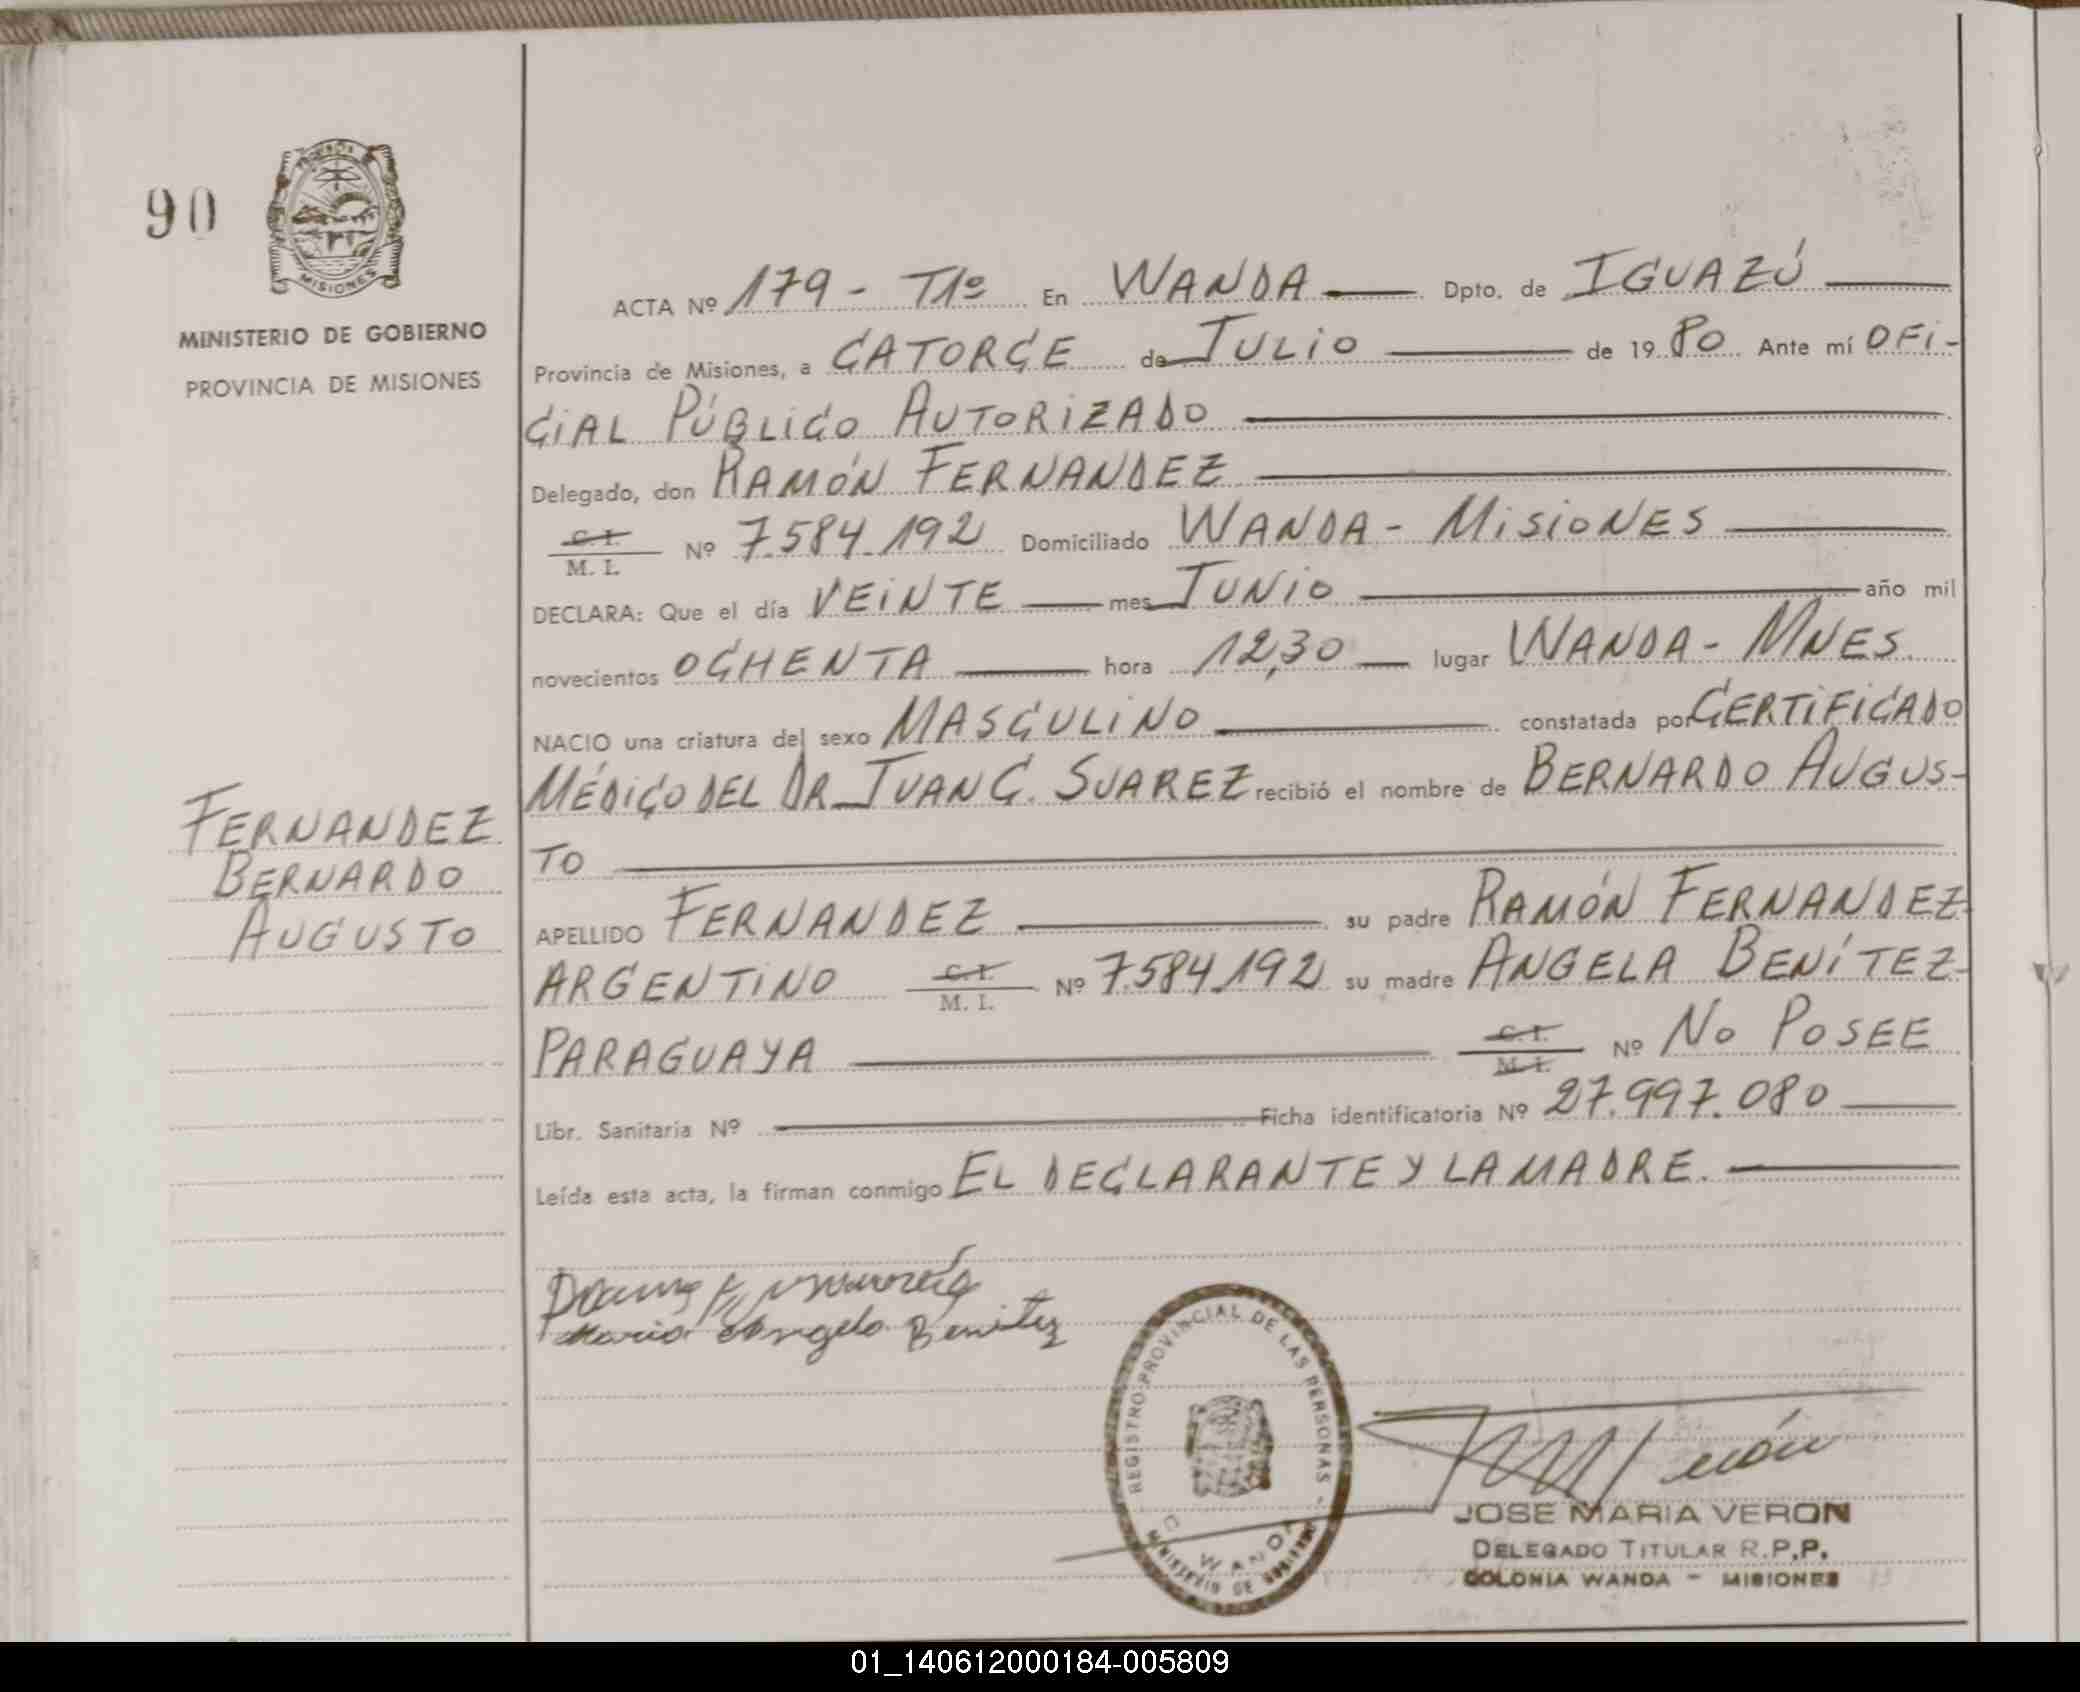 90
PROVINCIA
MISIONES
MINISTERIO DE GOBIERNO
PROVINCIA DE MISIONES
FERNANDEZ
BERNARDO
AUGUSTO
ACTA Nº 179 - T1º En WANDA Dpto. de IGUAZÚ
Provincia de Misiones, a CATORCE de JULIO de 1980 Ante mí OFI-
CIAL PÚBLICO AUTORIZADO
Delegado, don RAMÓN FERNANDEZ
C. I.
M. I. Nº 7.584.192 Domiciliado WANDA - MISIONES
DECLARA: Que el día VEINTE mes JUNIO año mil
novecientos OCHENTA hora 12,30 lugar WANDA - MNES.
NACIO una criatura del sexo MASCULINO constatada por CERTIFICADO
MÉDICO DEL DR. JUAN C. SUAREZ recibió el nombre de BERNARDO AUGUS-
TO
APELLIDO FERNANDEZ su padre RAMÓN FERNANDEZ-
ARGENTINO C. I.
M. I. Nº 7.584.192 su madre ANGELA BENÍTEZ-
PARAGUAYA C. I.
M. I. Nº NO POSEE
Libr. Sanitaria Nº Ficha identificatoria Nº 27.997.080
Leída esta acta, la firman conmigo EL DECLARANTE Y LA MADRE.
Maria Angela Benitez
REGISTRO PROVINCIAL DE LAS PERSONAS
WANDA
MINISTERIO DE GOBIERNO
JOSE MARIA VERON
DELEGADO TITULAR R.P.P.
COLONIA WANDA - MISIONES
01_140612000184-005809